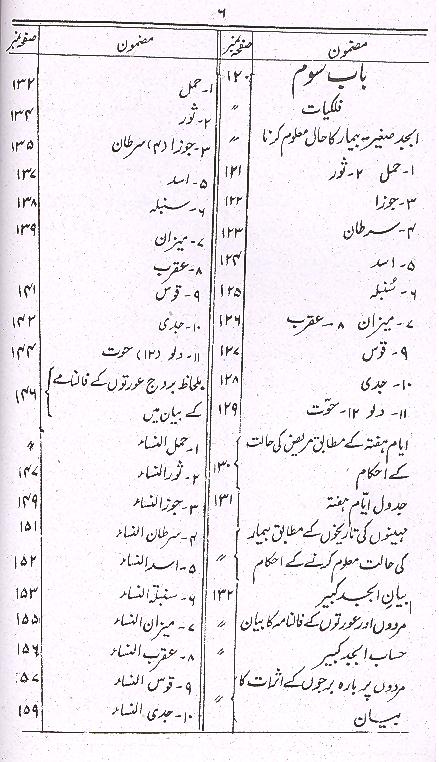 ۶
مضمون صفحہ نمبر
باب سوم ۱۲۰
فلکیات ״
ابجد صغیر - بیمار کا حال معلوم کرنا ״
۱- حمل ۲- ثور ۱۲۱
۳- جوزا ۱۲۲
۴- سرطان ۱۲۳
۵- اسد ۱۲۴
۶- سنبلہ ۱۲۵
۷- میزان ۸- عقرب ۱۲۶
۹- قوس ۱۲۷
۱۰- جدی ۱۲۸
۱۱- دلو ۱۲- حوت ۱۲۹
ایام ہفتہ کے مطابق مریض کی حالت
کے احکام ۱۳۰
جدول ایام ہفتہ ۱۳۱
مہینوں کی تاریخوں کے مطابق بیمار
کی حالت معلوم کرنے کے احکام ״
بیان ابجد کبیر ۱۳۲
مردوں اور عورتوں کے فالنامہ کا بیان ״
حساب ابجد کبیر ״
مردوں پر بارہ برجوں کے اثرات کا
بیان ״
مضمون صفحہ نمبر
۱- حمل ۱۳۲
۲- ثور ۱۳۴
۳- جوزا (۴) سرطان ۱۳۵
۵- اسد ۱۳۷
۶- سنبلہ ۱۳۸
۷- میزان ۱۳۹
۸- عقرب
۹- قوس ۱۴۱
۱۰- جدی ۱۴۲
۱۱- دلو (۱۲) حوت ۱۴۴
بلحاظ بروج عورتوں کے فالنامے
کے بیان میں ۱۴۶
۱- حمل النساء ״
۲- ثور النساء ۱۴۷
۳- جوزا النساء ۱۴۹
۴- سرطان النساء ۱۵۱
۵- اسد النساء ۱۵۲
۶- سنبلۃ النساء ۱۵۳
۷- میزان النساء ۱۵۵
۸- عقرب النساء ۱۵۶
۹- قوس النساء ۱۵۷
۱۰- جدی النساء ۱۵۹